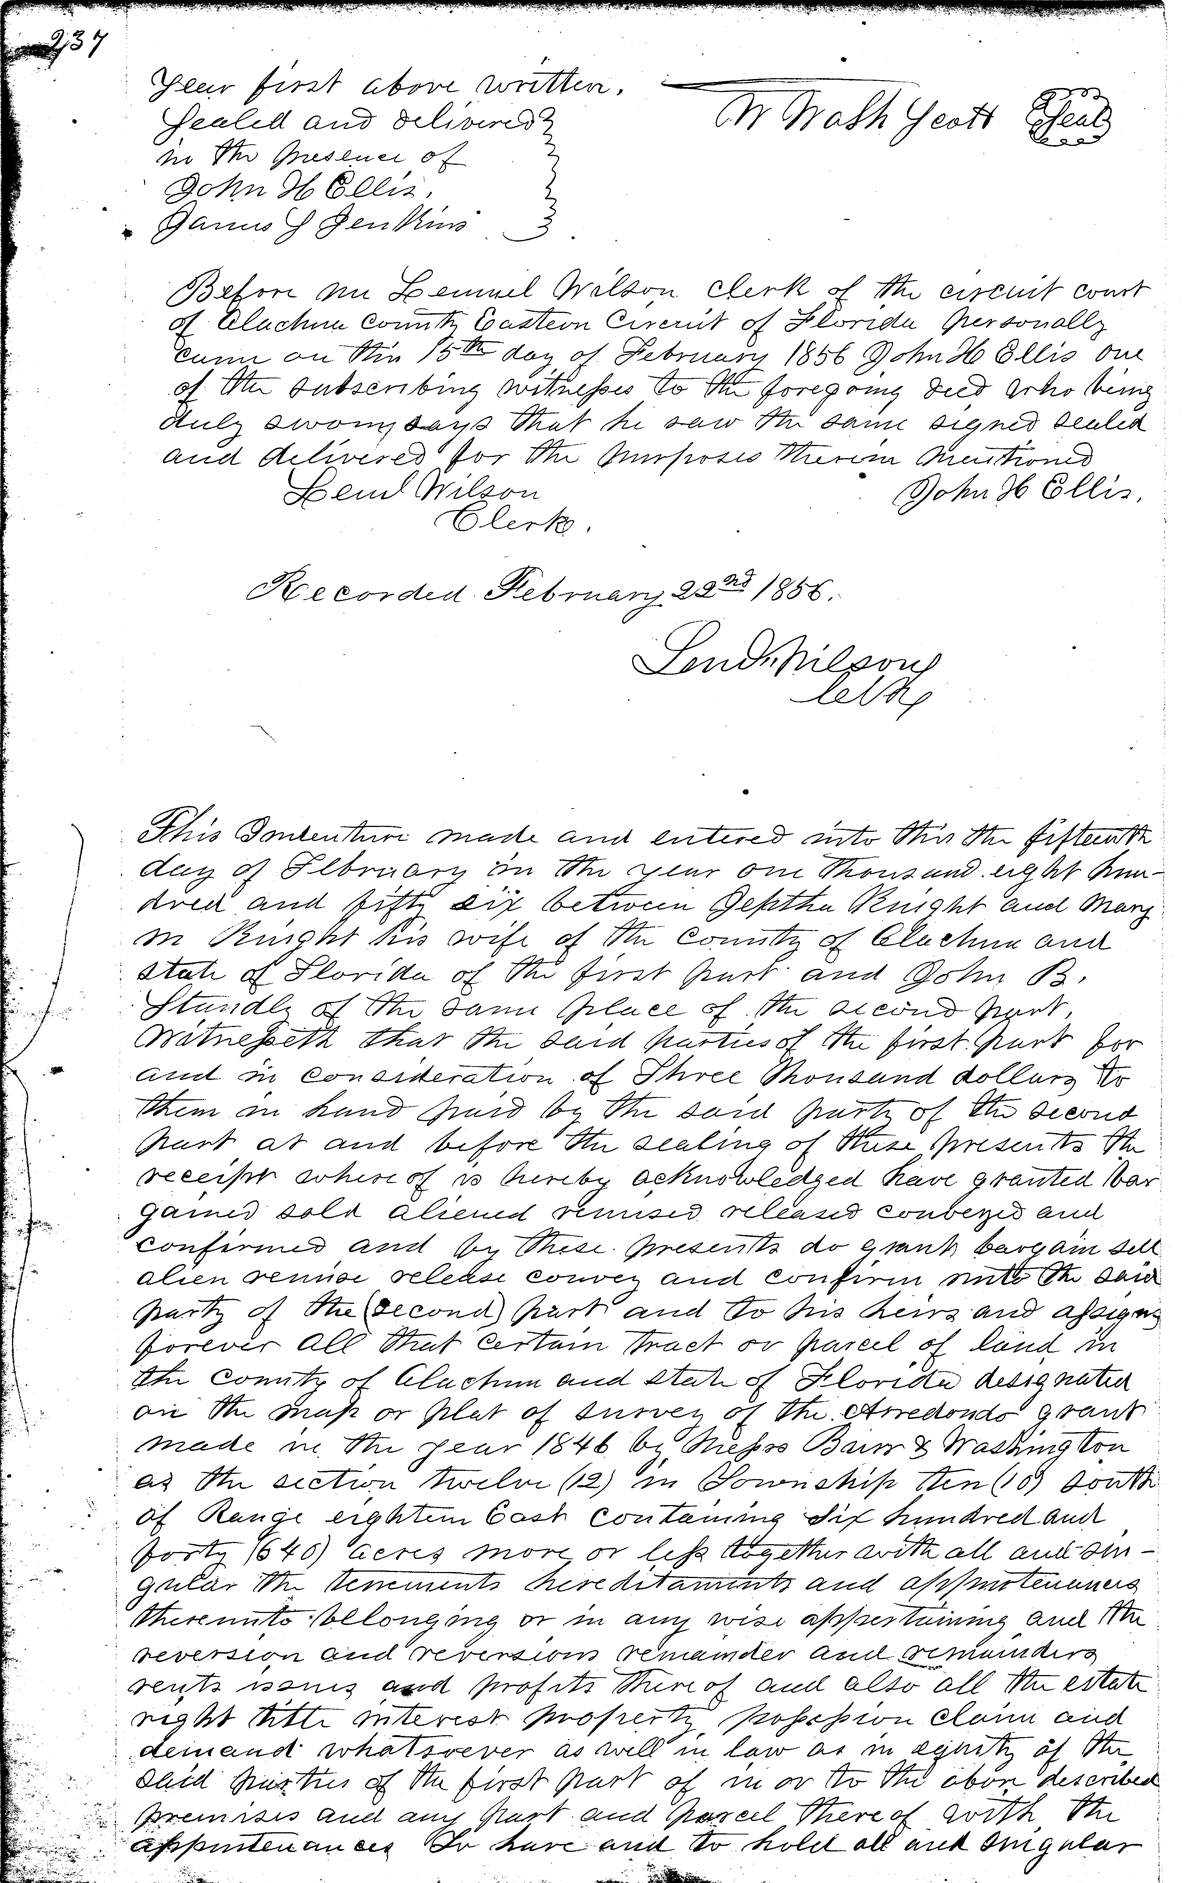 237
Year first above written.
W Wash Scott Seal
Sealed and delivered
in the presence of
John H Ellis.
James S Jenkins
Before me Lemuel Wilson clerk of the circuit court
of Alachua county Eastern Circuit of Florida personally
came on this 15th day of February 1856 John H Ellis one
of the subscribing witnesses to the foregoing deed who being
duly sworn says that he saw the same signed sealed
and delivered for the purposes therein mentioned
Leml Wilson John H Ellis.
Clerk.
Recorded February 22nd 1856.
Leml. Wilson
Clk
This Indenture made and entered into this the fifteenth
day of February in the year one thousand eight hun-
dred and fifty six between Jeptha Knight and Mary
M Knight his wife of the county of Alachua and
state of Florida of the first part and John B.
Standly of the same place of the second part,
Witnesseth that the said parties of the first part for
and in consideration of Three Thousand dollars to
them in hand paid by the said party of the second
part at and before the sealing of these presents the
receipt where of is hereby acknowledged have granted bar
gained sold aliened remised released conveyed and
confirmed and by these presents do grant bargain sell
alien remise release convey and confirm unto the said
party of the (second) part and to his heirs and assigns
forever All that certain tract or parcel of land in
the county of Alachua and state of Florida designated
on the map or plat of survey of the Arredondo grant
made in the year 1846 by Messrs Burr & Washington
as the section twelve (12) in Township ten (10) south
of Range eighteen East containing Six hundred and
forty (640) acres more or less together with all and sin-
gular the tenements hereditaments and appurtenances
thereunto belonging or in any wise appertaining and the
reversion and reversions remainder and remainders
rents issues and profits there of and also all the estate
right title interest property possession claim and
demand whatsoever as well in law as in equity of the
said parties of the first part of in or to the above described
premises and any part and parcel there of with the
appurtenances To have and to hold all and singular